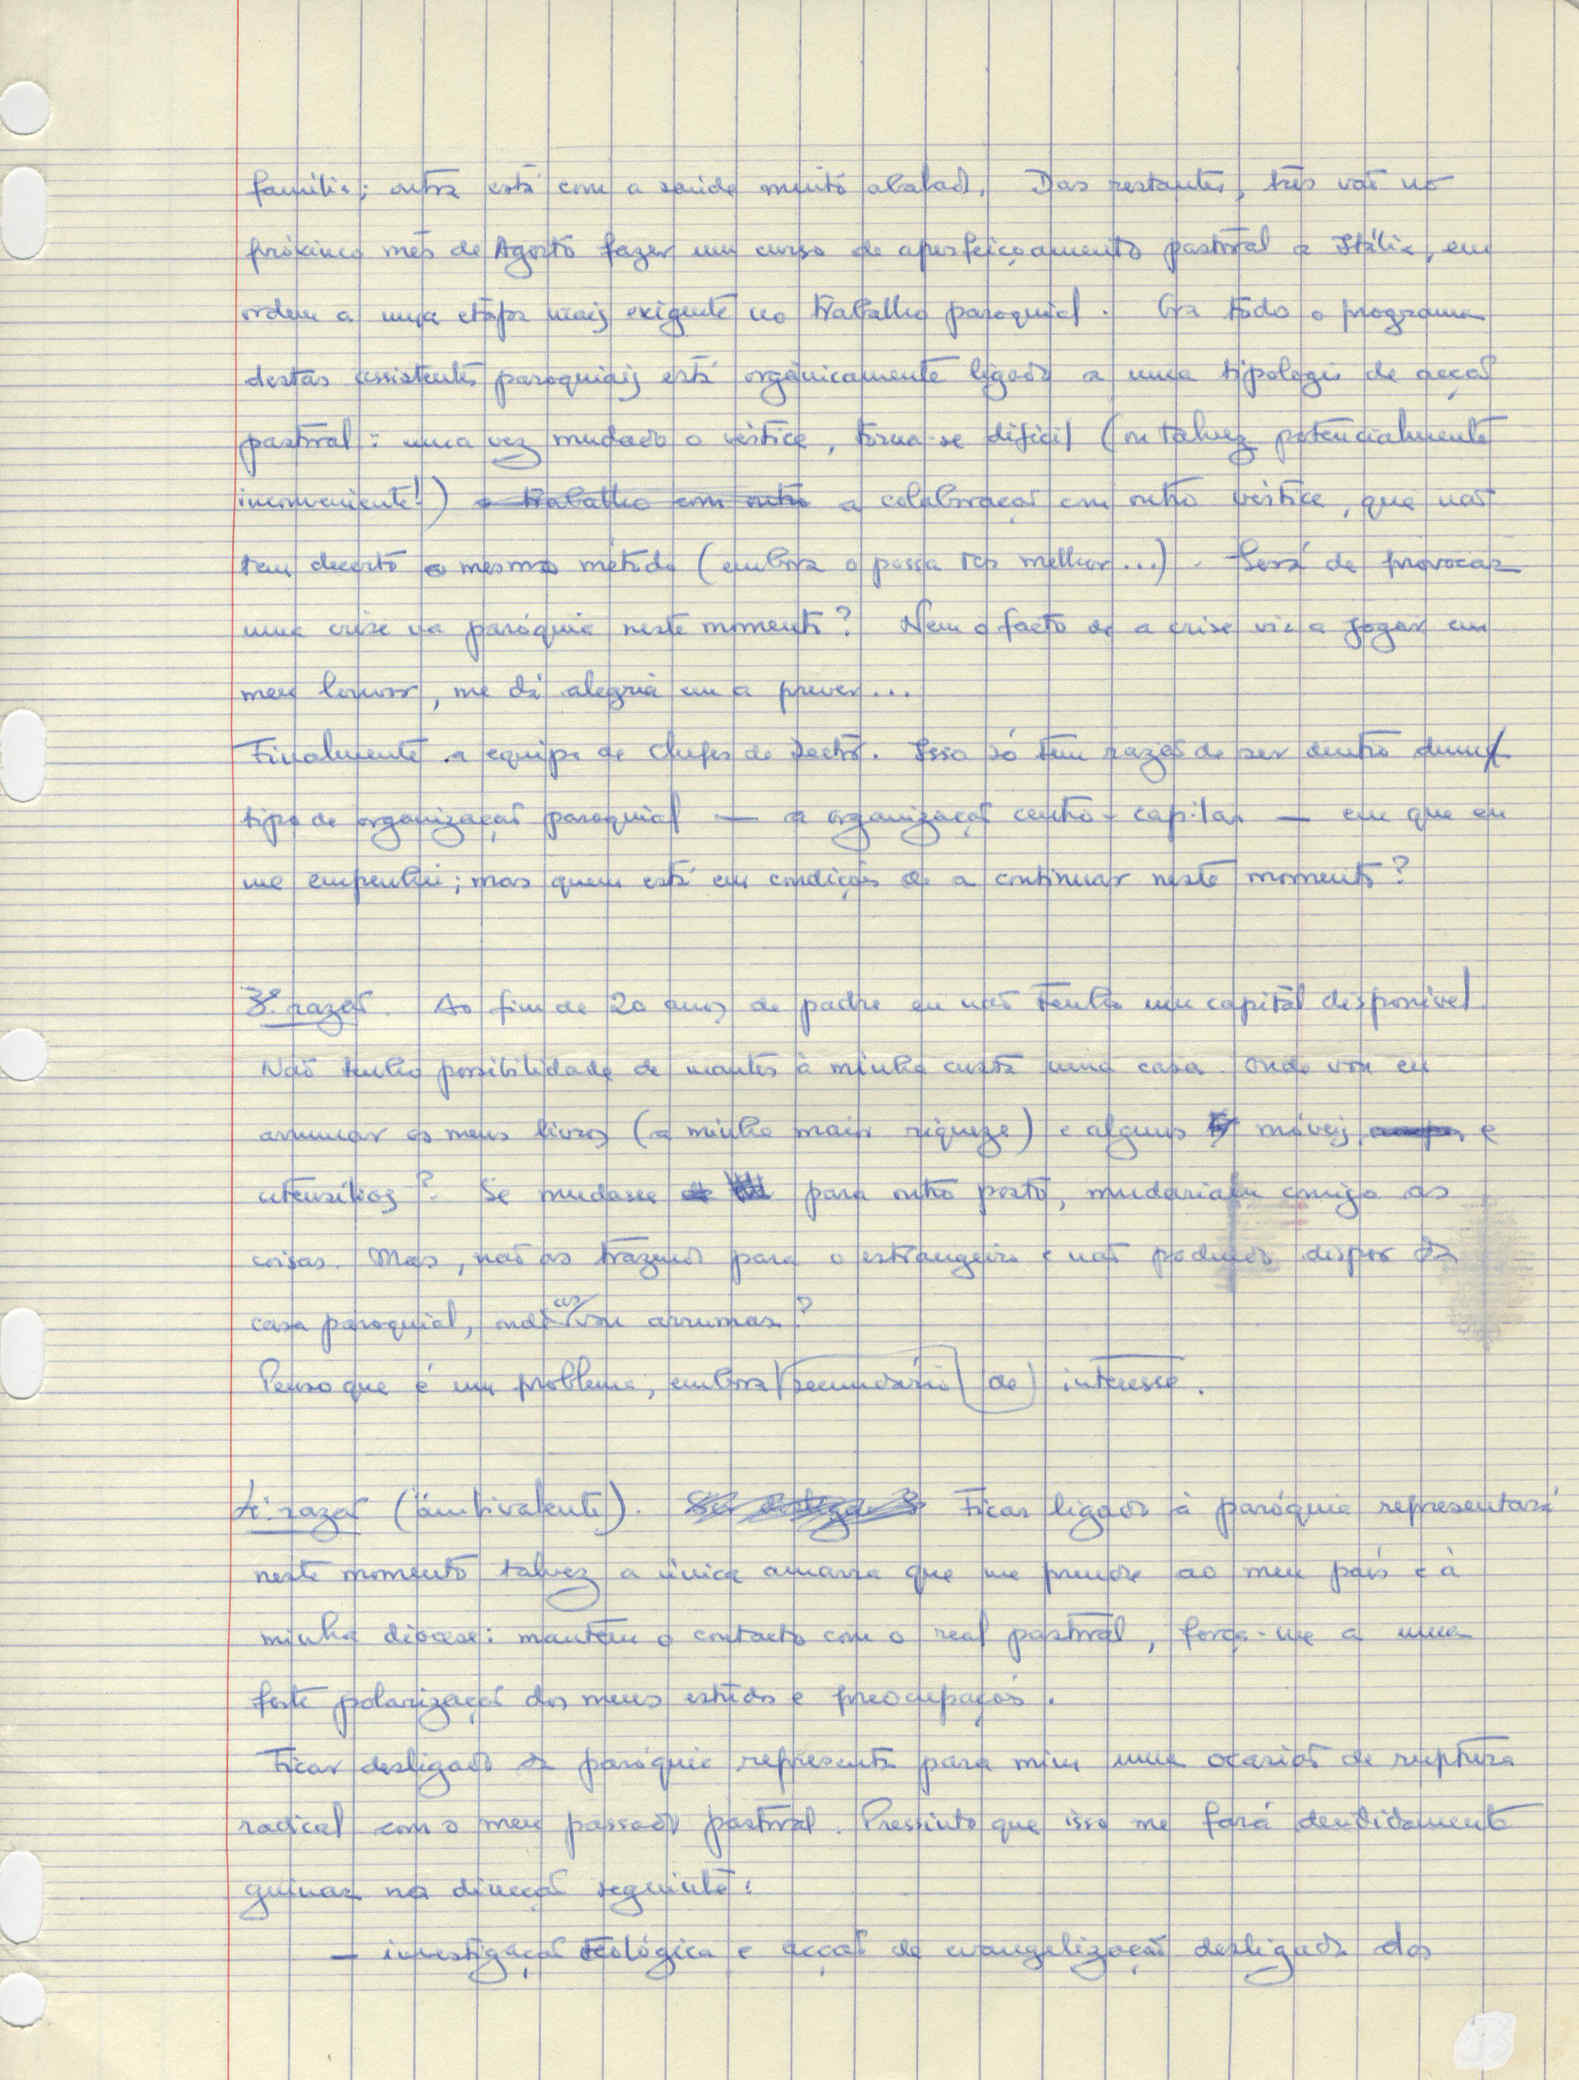 família; outra está com a saúde muito abalada. Das restantes, três vão no
próximo mês de Agosto fazer um curso de aperfeiçoamento pastoral a Itália, em
ordem a uma etapa mais exigente no trabalho paroquial. Ora todo o programa
destas assistentes paroquiais está orgânicamente ligado a uma tipologia de acção
pastoral: uma vez mudado o vértice, torna-se difícil (ou talvez potencialmente
inconveniente!) o trabalho com outro a colaboração com outro vértice, que não
tem decerto o mesmo método (embora o possa ter melhor...). Será de provocar
uma crise na paróquia neste momento? Nem o facto de a crise vir a jogar em
meu louvor, me dá alegria em a prever...
Finalmente a equipa de chefes de sector. Isso só tem razão de ser dentro dum
tipo de organização paroquial — a organização centro-capilar — em que eu
me empenhei; mas quem está em condições de a continuar neste momento?
3ª razão. Ao fim de 20 anos de padre eu não tenho um capital disponível.
Não tenho possibilidade de manter à minha custa uma casa. Onde vou eu
arrumar os meus livros (a minha maior riqueza) e alguns móveis e
utensílios? Se mudasse para outro posto, mudariam comigo as
coisas. Mas, não os trazendo para o estrangeiro e não podendo dispor da
casa paroquial, onde os vou arrumar?
Penso que é um problema, embora secundário de interesse.
4ª razão (ambivalente). Ficar ligado à paróquia representará
neste momento talvez a única amarra que me prende ao meu país e à
minha diocese: mantém o contacto com o real pastoral, força-me a uma
forte polarização dos meus estudos e preocupações.
Ficar desligado da paróquia representa para mim uma ocasião de ruptura
radical com o meu passado pastoral. Pressinto que isso me fará decididamente
guinar na direcção seguinte:
— investigação teológica e acção de evangelização desligada dos